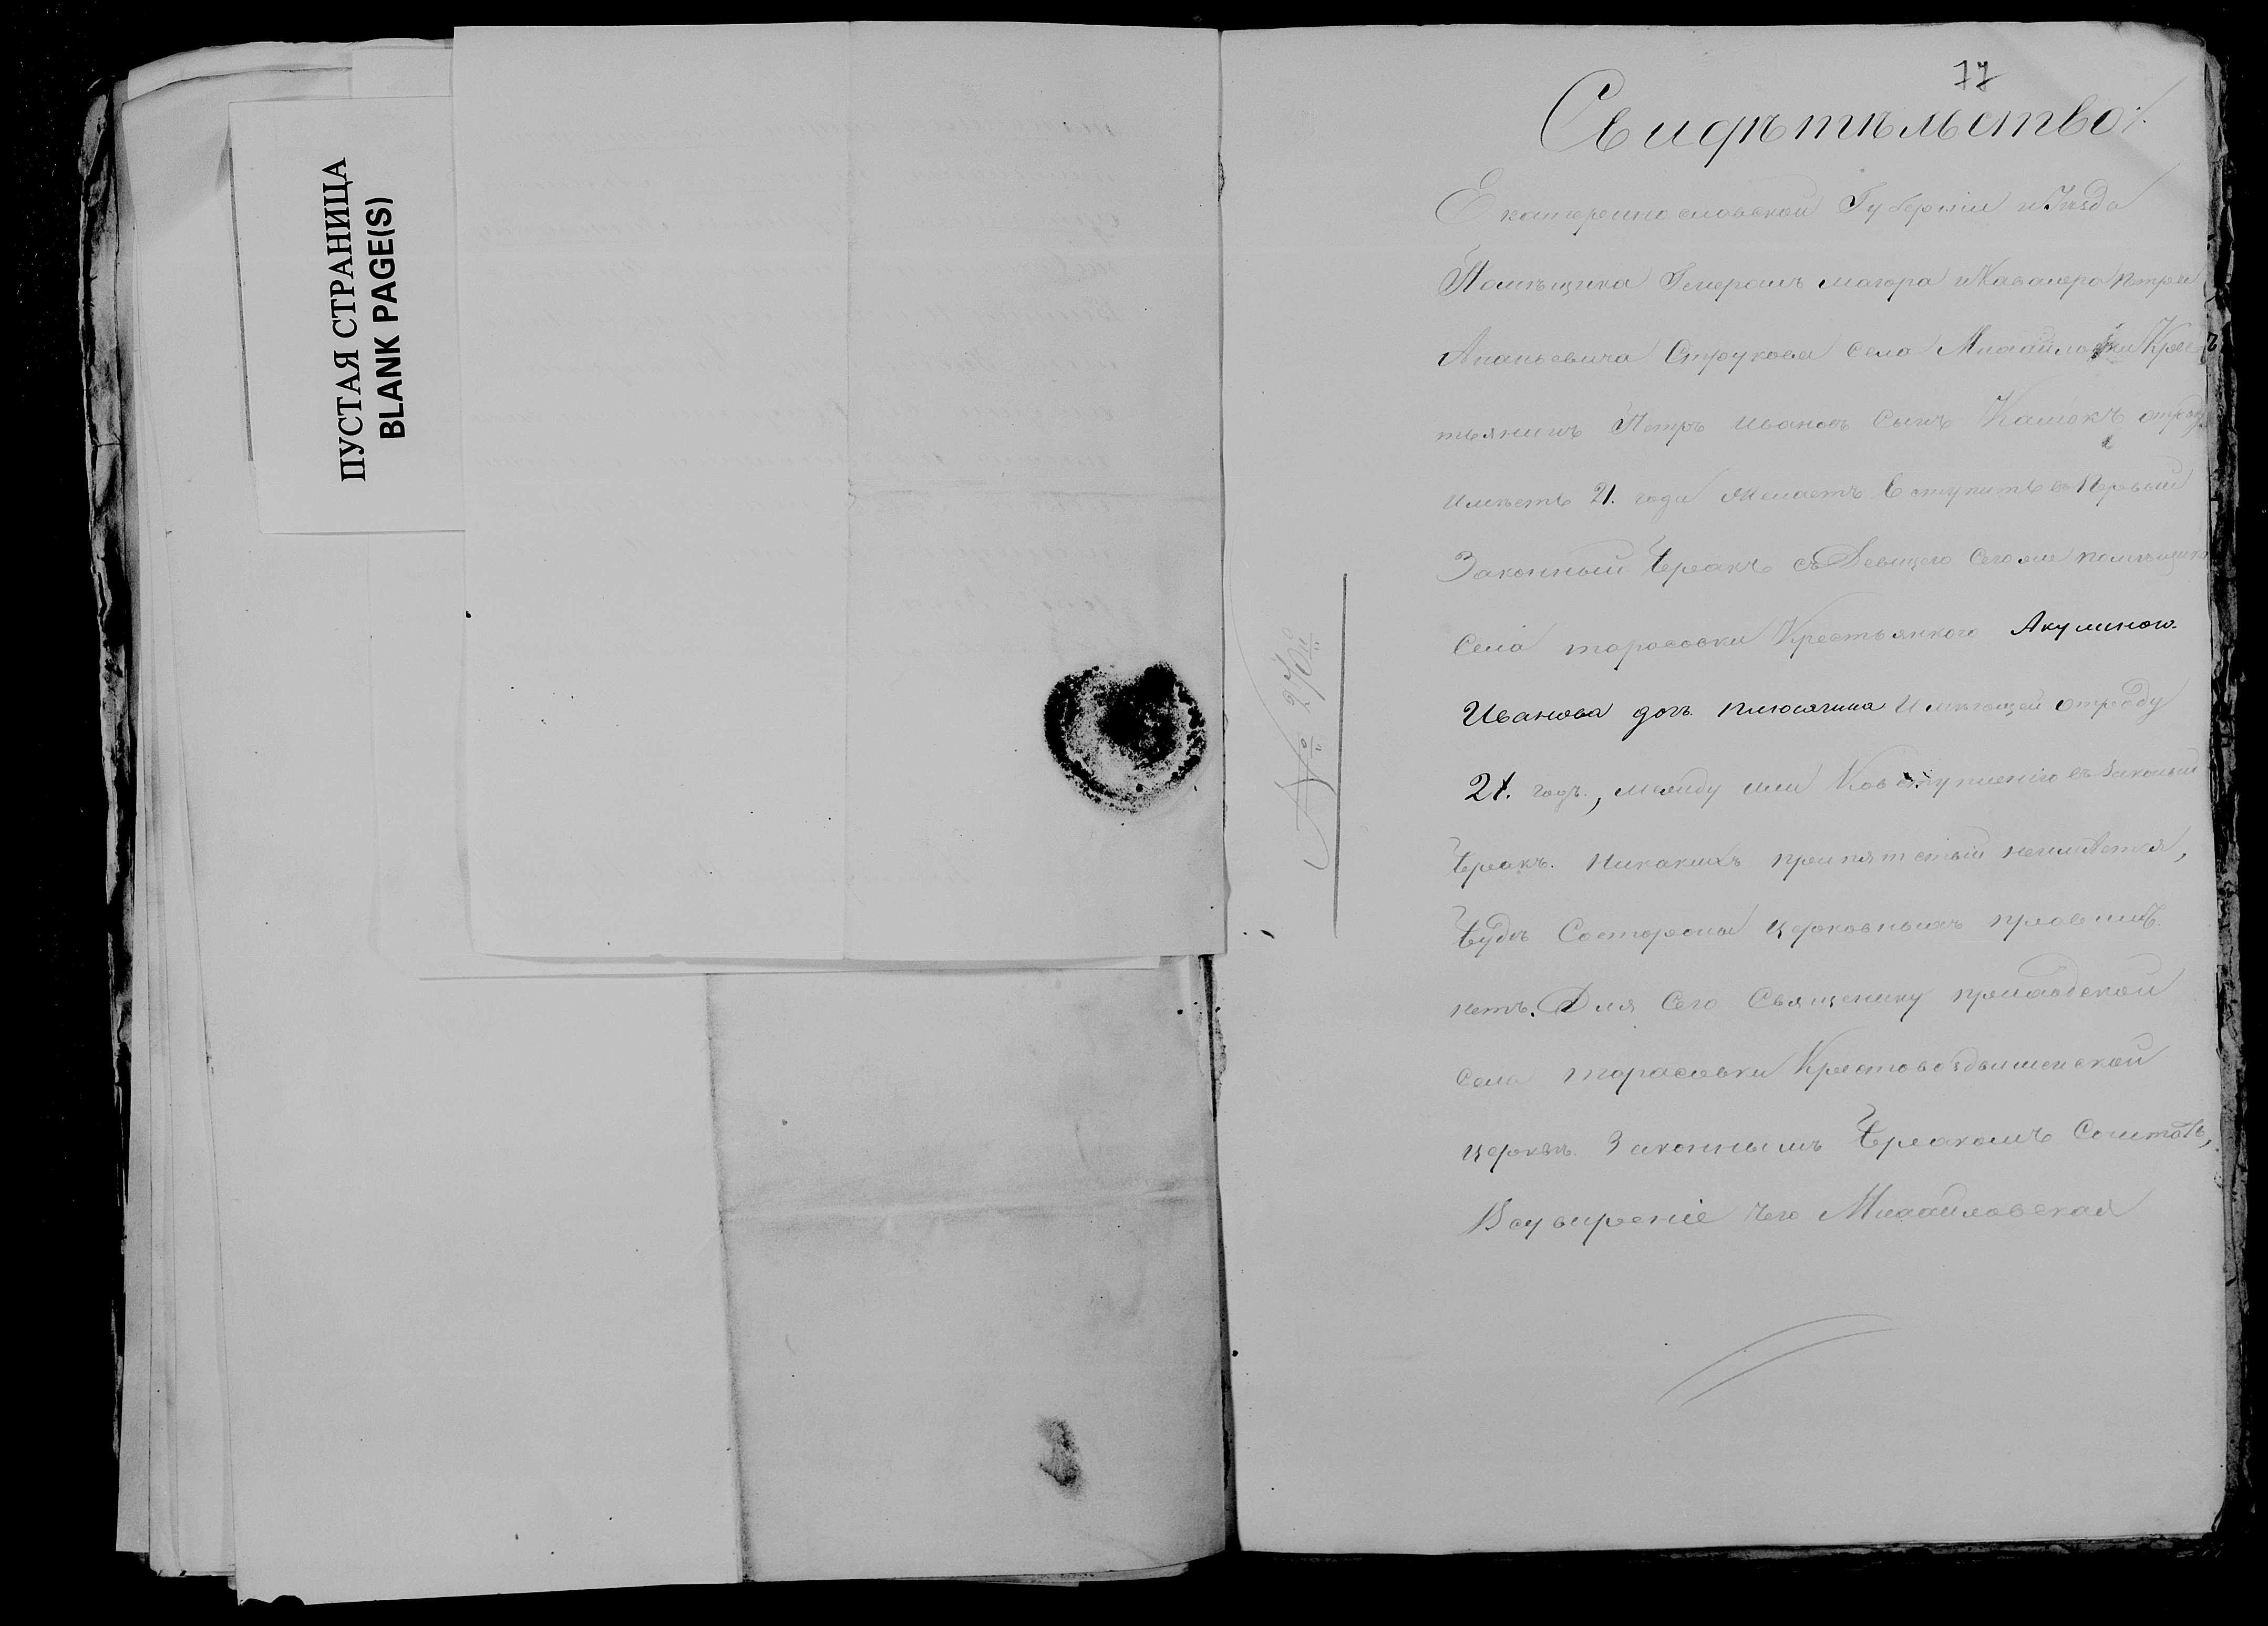 ПУСТАЯ СТРАНИЦА
BLANK PAGE(S)
77
Свидѣтѣльство
Екатеринославской Губерніи и Уѣзда
Помѣщика Генералъ маіора и Кавалера Петра
Ананьевича Струкова села Михайловки Крес
тьянинъ Петръ Ивановъ Сынъ отроду
имѣетъ 21. года желаетъ вступить въ Первый
Законный бракъ съ Девицею сего же помѣщика
села тарасовки Крестьянкою Акулиною
Иванова дочь имѣющей отроду
21. годъ, между ими Ковступленію въ Законый
бракъ. Никакихъ препятствій неимѣется,
будѣ Состороны церковныхъ правилъ
нетъ. Для Сего Священику приходской
села тарасовки Крестовоздвиженской
церкви Законнымъ бракомъ Сочетать,
Воувиреніе чего Михайловская
№ 27й